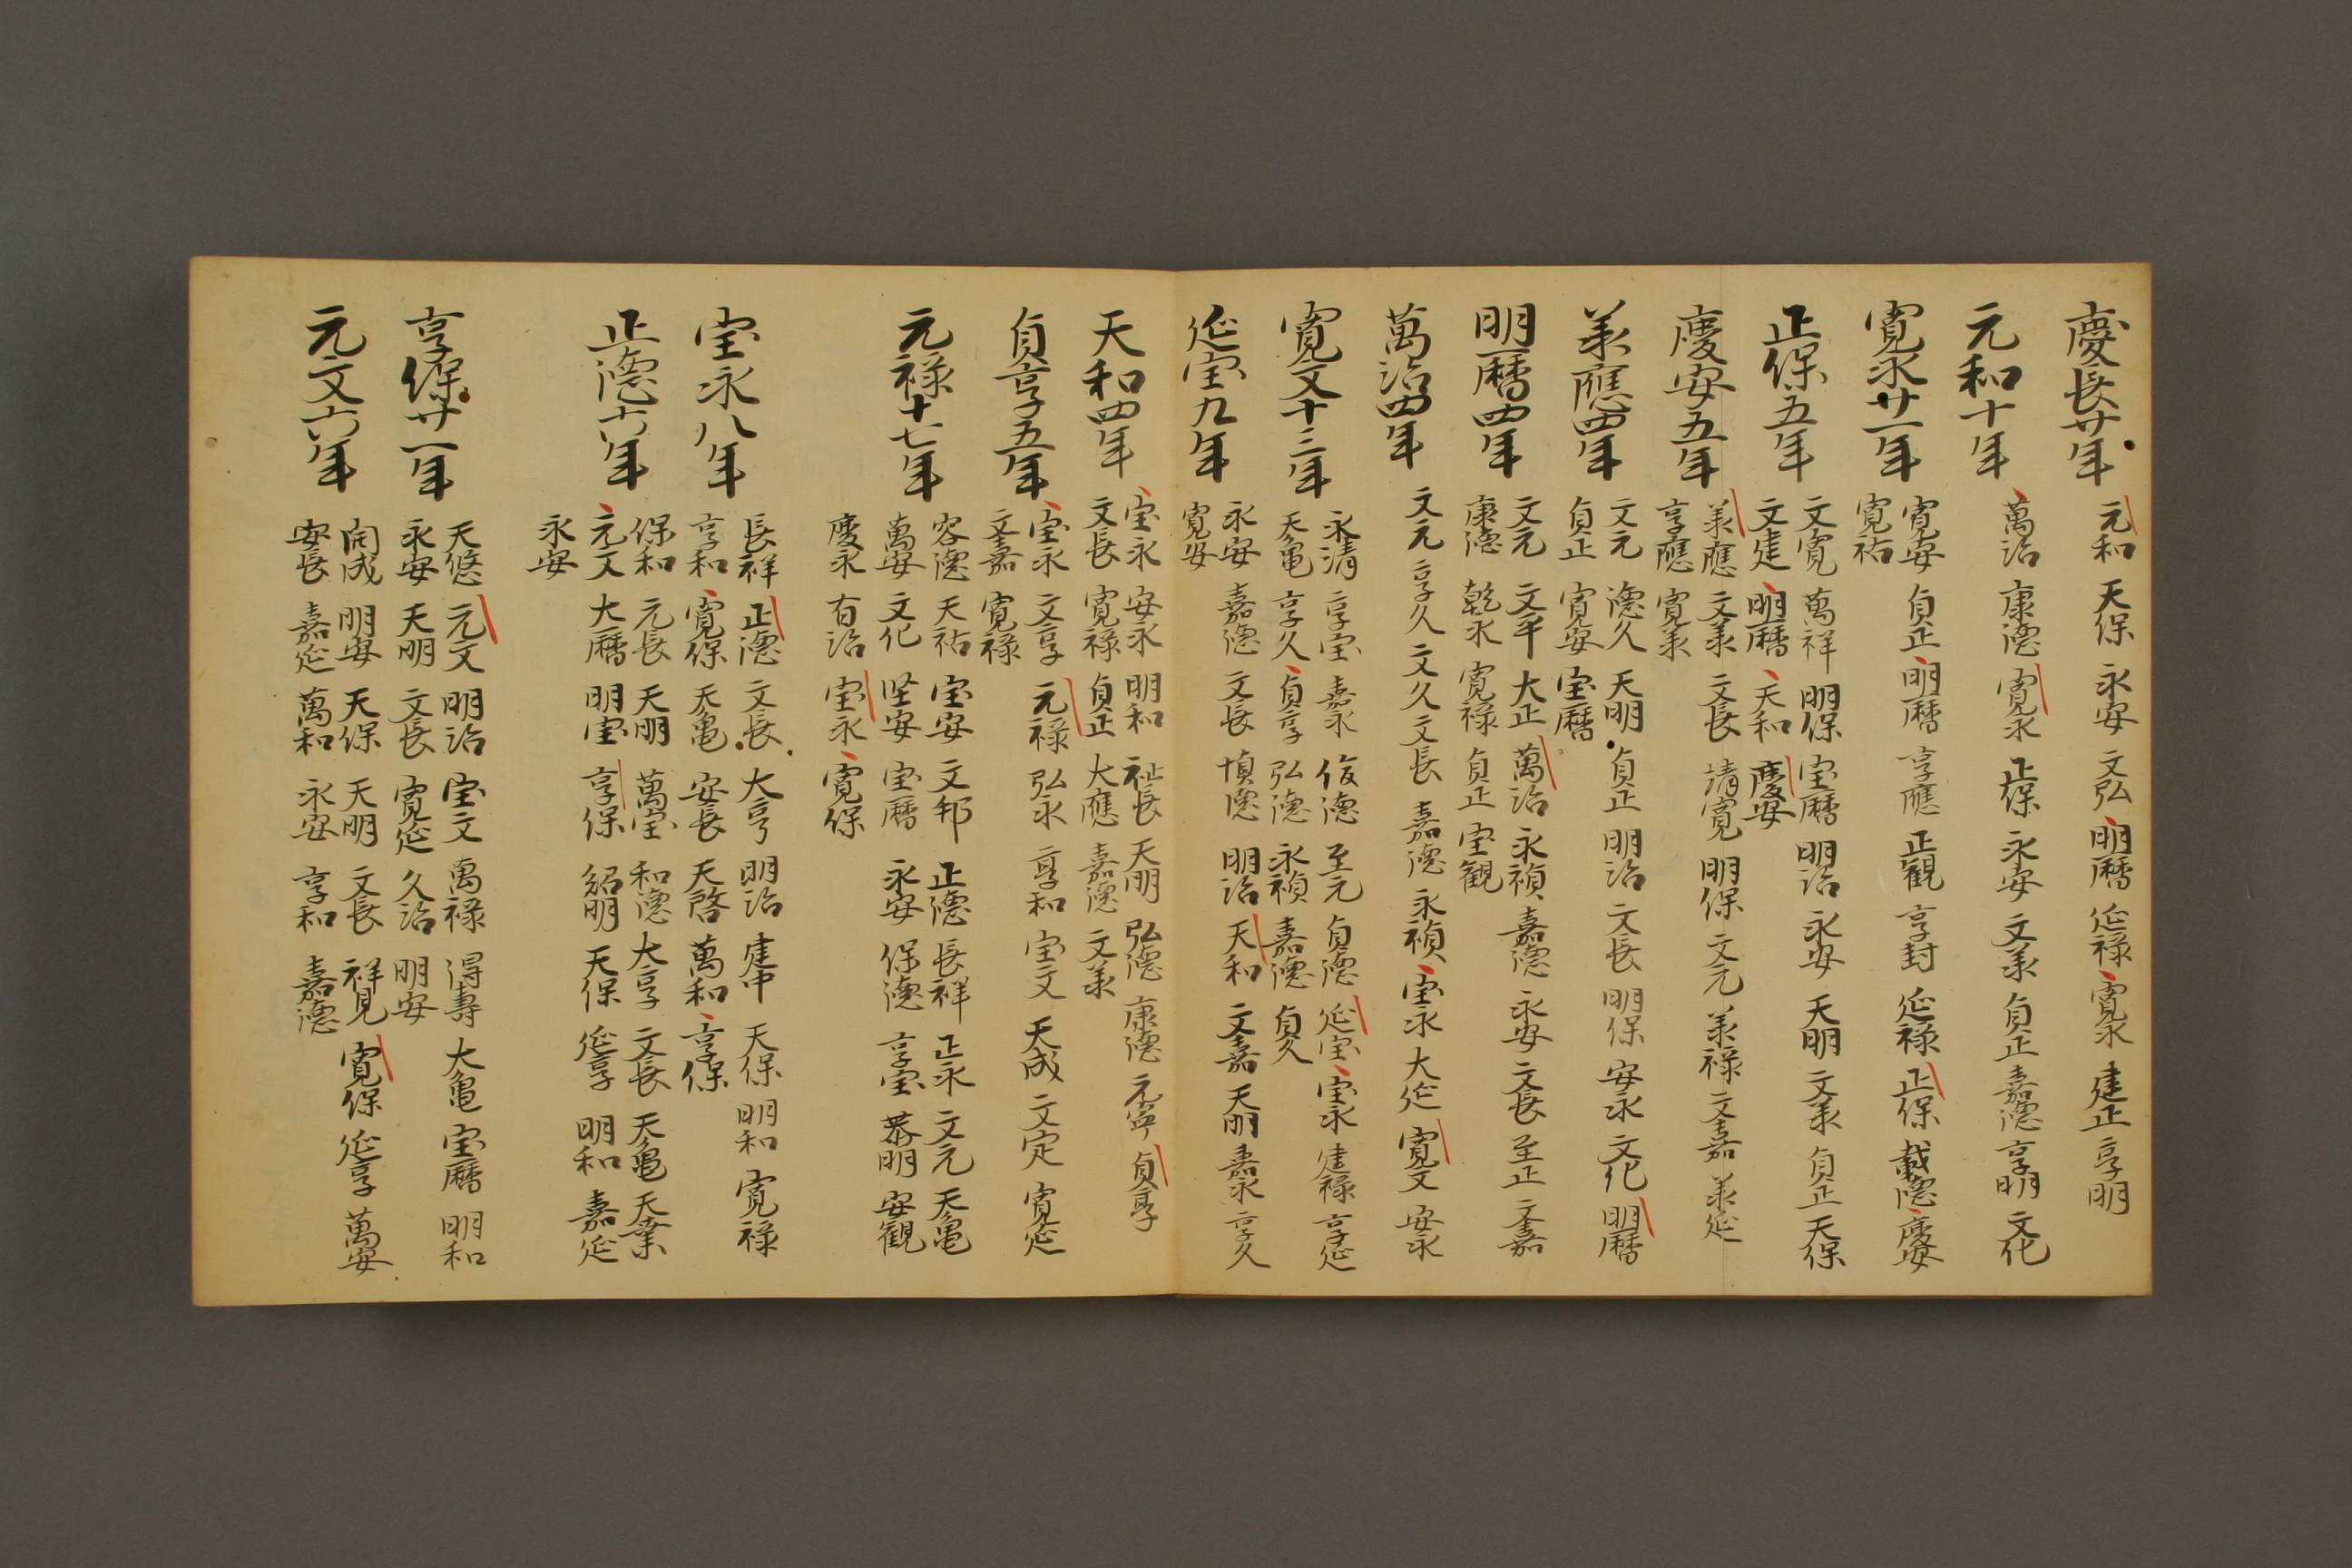 慶長廿年
元和 天保 永安 文弘 明曆 延禄 寛永 建正 享明
元和十年
萬治 康德 寛永 正保 永安 文承 貞正 嘉德 享明 文化
寛永廿一年
寛安 貞正 明曆 享應 正観 享封 延禄 正保 載德 慶安
寛祐
正保五年
文寛 萬祥 明保 宝曆 明治 永安 天明 文承 貞正 天保
文建 明曆 天和 慶安
慶安五年
承應 文承 文長 靖寛 明保 文元 承禄 文嘉 承延
享應 寛承
承應四年
文元 德久 天明 貞正 明治 文長 明保 安永 文化 明曆
貞正 寛安 宝曆
明曆四年
文元 文平 大正 萬治 永禎 嘉德 永安 文長 至正 文嘉
康德 乾永 寛禄 貞正 宝観
萬治四年
文元 享久 文久 文長 嘉德 永禎 宝永 大延 寛文 安永
寛文十三年
永清 享宝 嘉永 俊德 至元 貞德 延宝 宝永 建禄 享延
天亀 享久 貞享 弘德 永禎 嘉德 貞久
延宝九年
永安 嘉德 文長 慎德 明治 天和 文嘉 天明 嘉永 享久
寛安
天和四年
宝永 安永 明和 祉長 天明 弘德 康德 元寧 貞享
文長 寛禄 貞正 大應 嘉德 文承
貞享五年
宝永 文享 元禄 弘永 享和 宝文 天成 文定 寛延
文嘉 寛禄
元禄十七年
容德 天祐 宝安 文邦 正德 長祥 正永 文元 天亀
萬安 文化 堅安 宝曆 永安 保德 享宝 恭明 安観
慶永 有治 宝永 寛保
宝永八年
長祥 正德 文長 大亨 明治 建中 天保 明和 寛禄
享和 寛保 天亀 安長 天啓 萬和 享保
正德六年
保和 元長 天明 萬宝 和德 大享 文長 天亀 天業
元文 大曆 明宝 享保 紹明 天保 延享 明和 嘉延
永安
享保廿一年
天悠 元文 明治 宝文 萬禄 得壽 大亀 宝曆 明和
永安 天明 文長 寛延 久治 明安
元文六年
開成 明安 天保 天明 文長 祥見 寛保 延享 萬安
安長 嘉延 萬和 永安 享和 嘉德